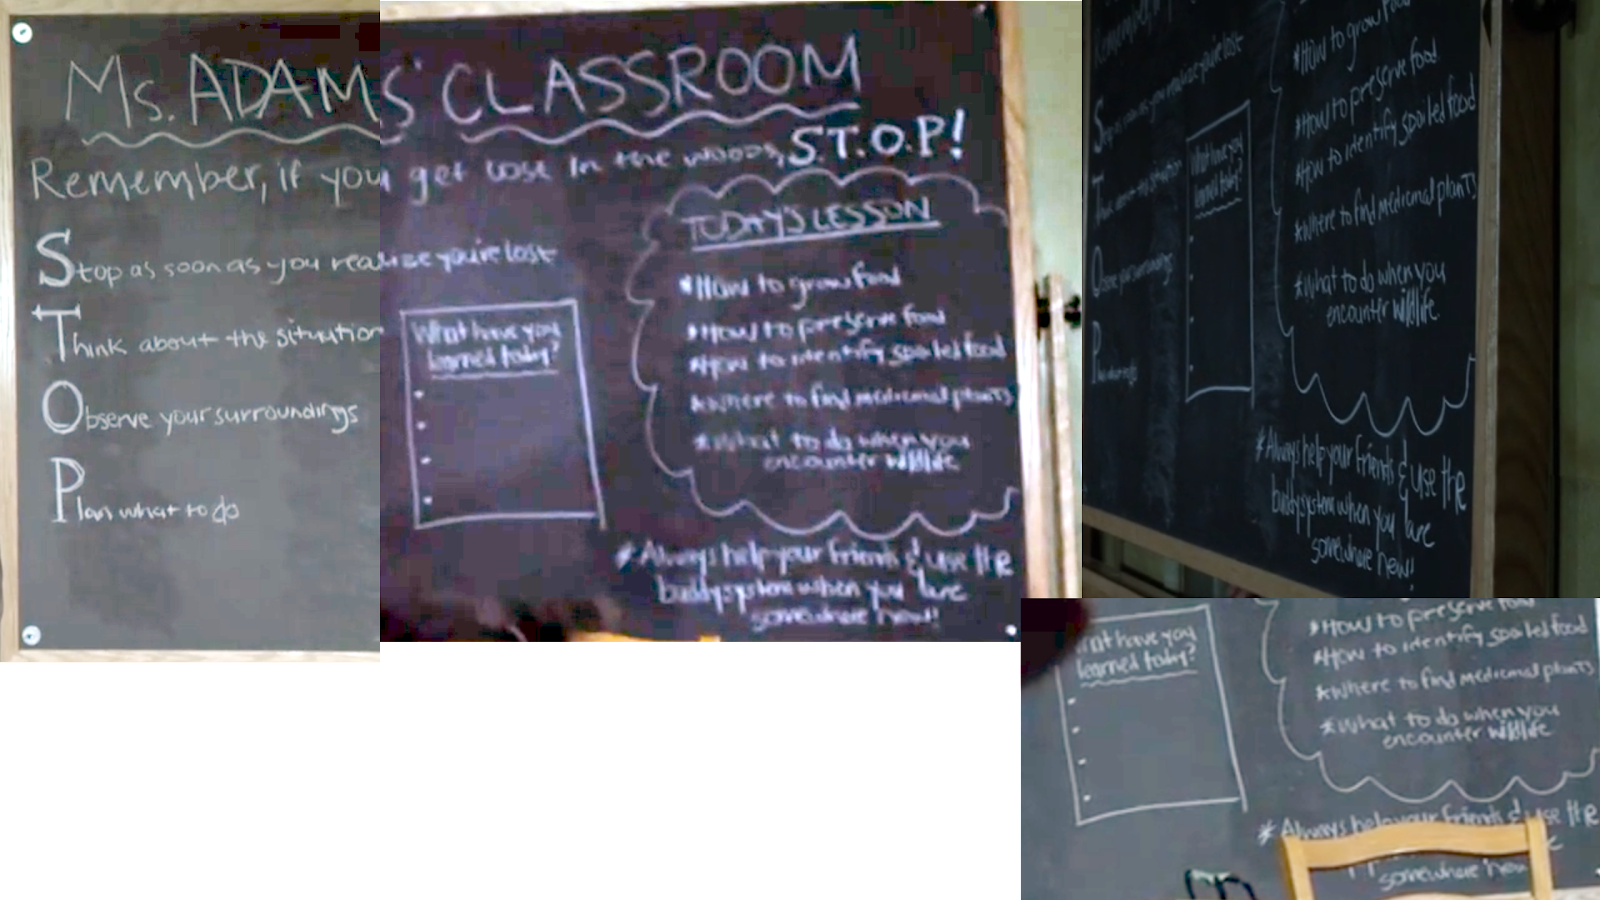 Ms. ADAMS' CLASSROOM
Remember, if you get lost in the woods, S.T.O.P!
Stop as soon as you realize you're lost
Think about the situation
Observe your surroundings
Plan what to do
What have you
learned today?
TODAY'S LESSON
*How to grow food
*How to preserve food
*How to identify spoiled food
*Where to find medicinal plants
*What to do when you
encounter wildlife
*Always help your friends & use the
buddy system when you are
somewhere new!
Stop as soon as you realize you're lost
Think about the situation
Observe your surroundings
Plan what to do
What have you
learned today?
How to grow food
*How to grow food
*How to preserve food
*How to identify spoiled food
*Where to find medicinal plants
*What to do when you
encounter wildlife
*Always help your friends & use the
buddy system when you are
somewhere new!
What have you
learned today?
*How to preserve food
*How to identify spoiled food
*Where to find medicinal plants
*What to do when you
encounter wildlife
*Always help your friends & use the
somewhere new